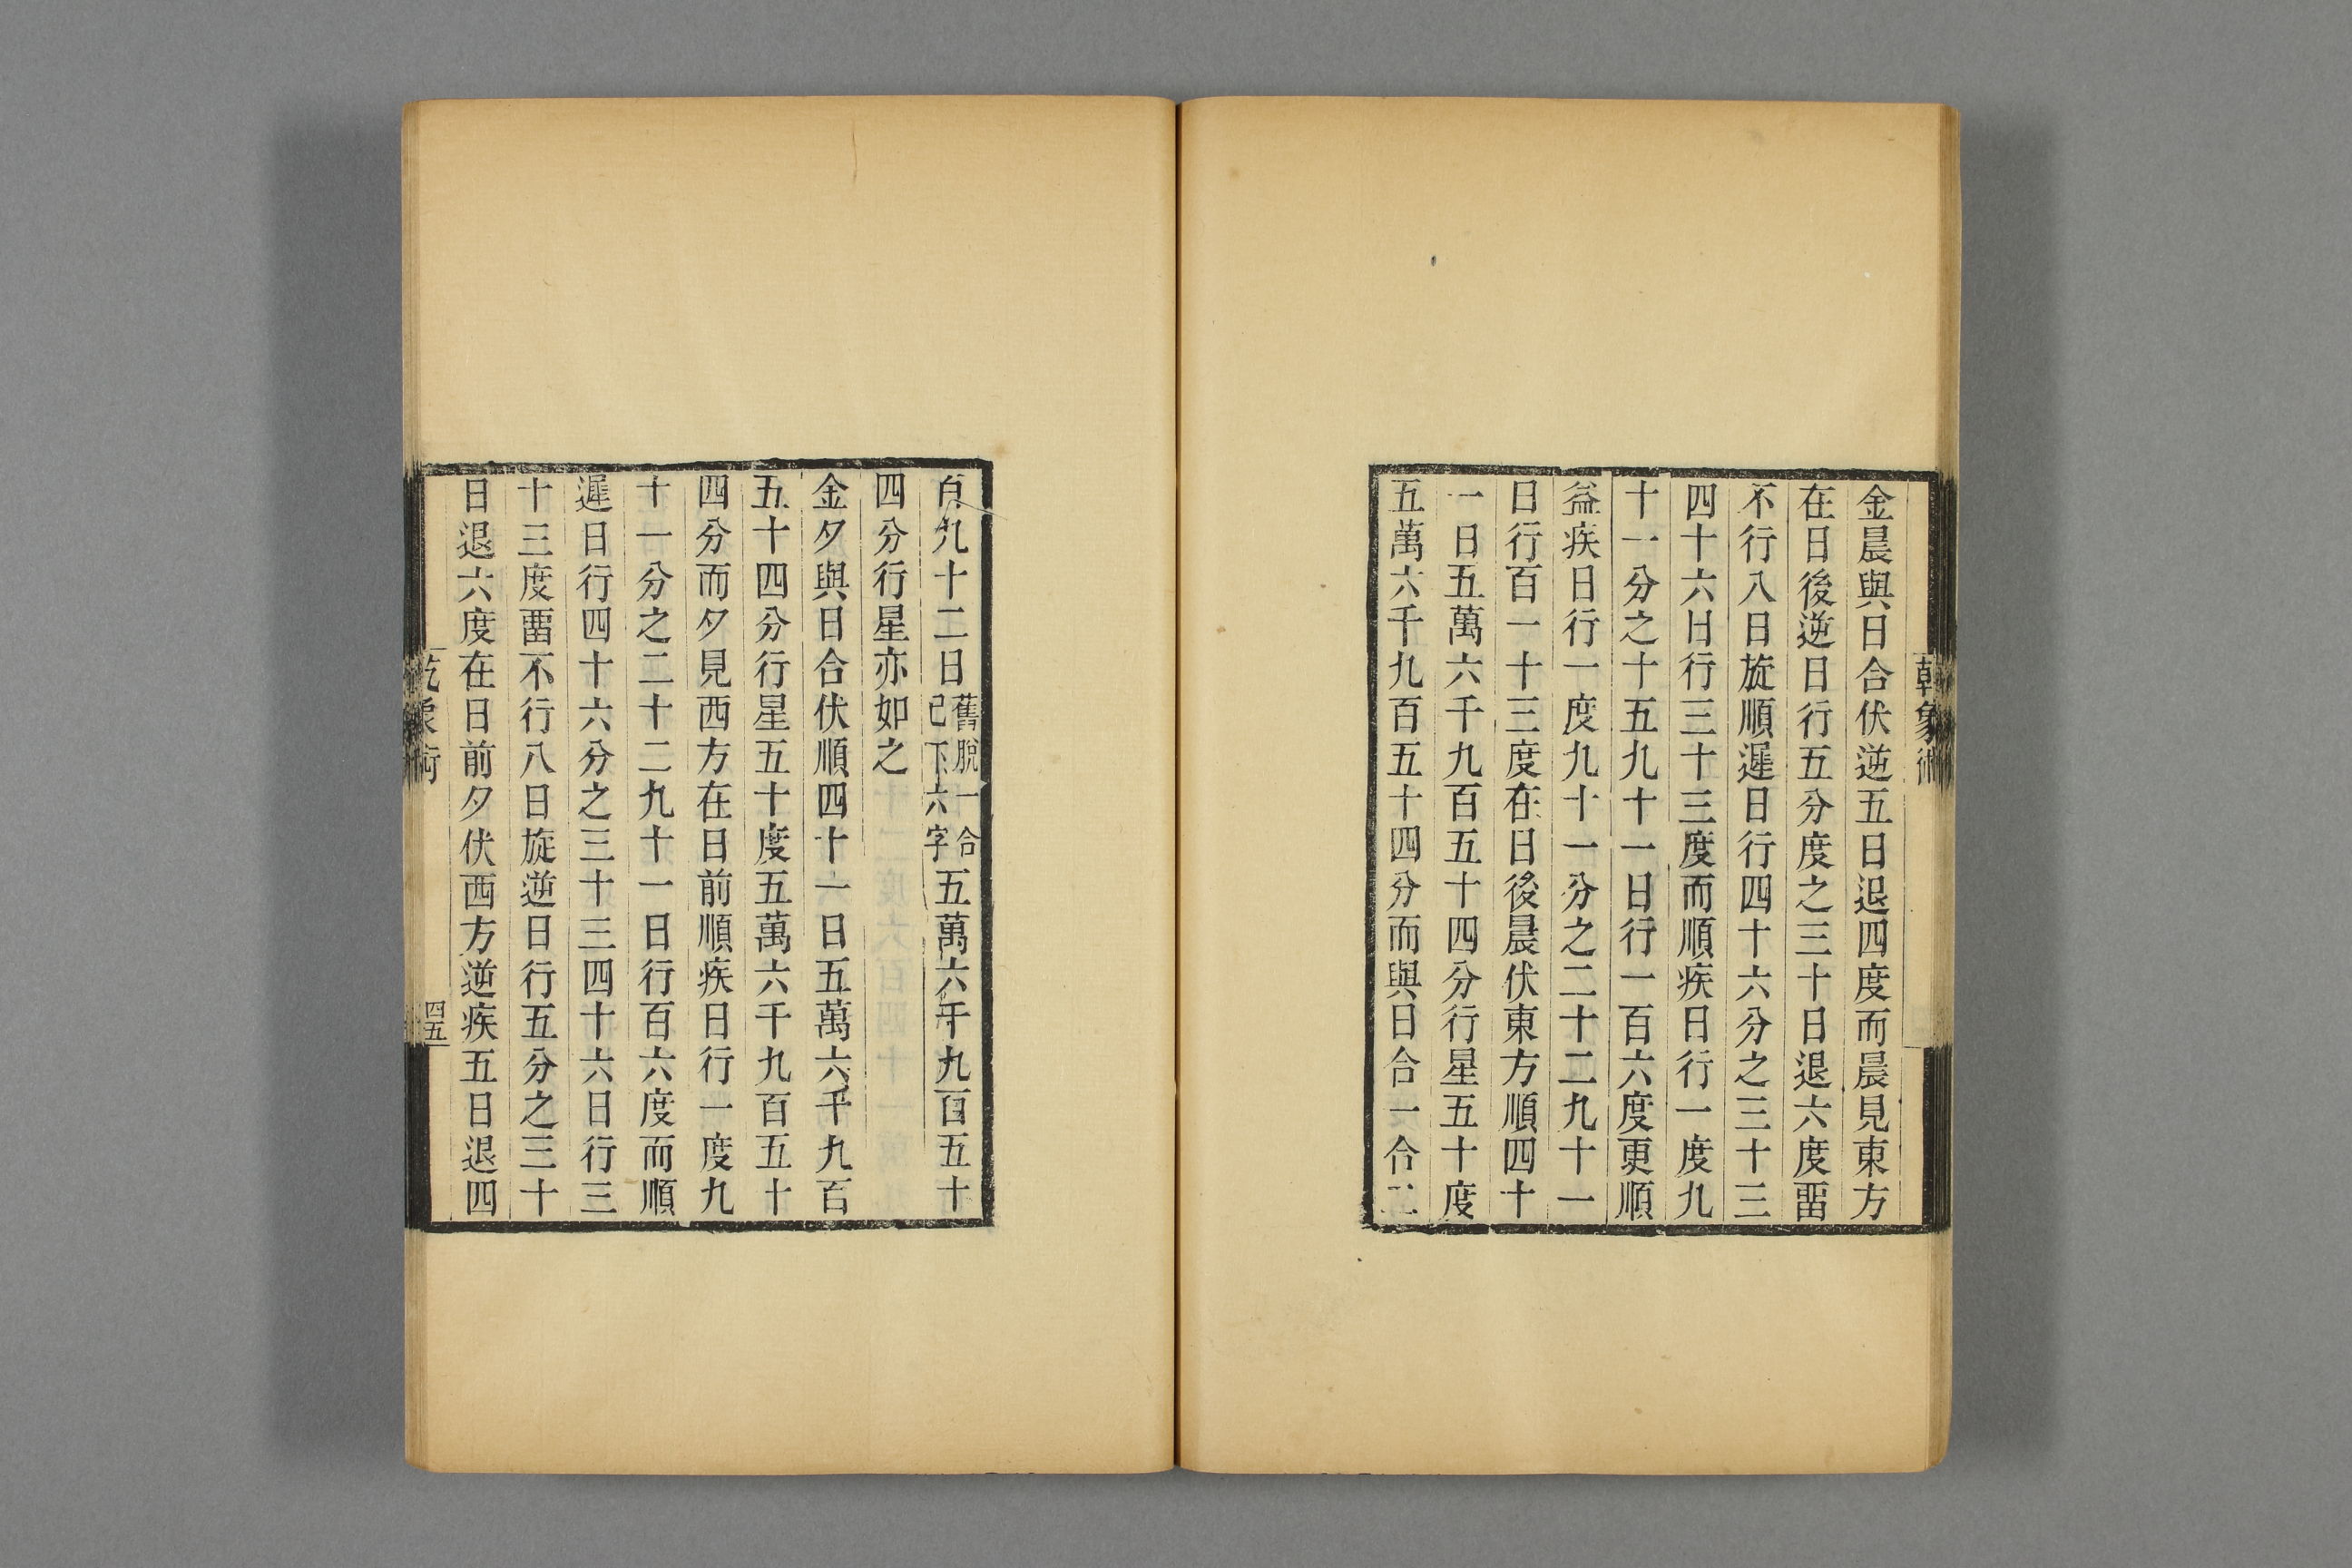 乾象術
金晨與日合伏逆五日退四度而晨見東方
在日後逆日行五分度之三十日退六度畱
不行八日旋順遲日行四十六分之三十三
四十六日行三十三度而順疾日行一度九
十一分之十五九十一日行一百六度更順
益疾日行一度九十一分之二十二九十一
日行百一十三度在日後晨伏東方順四十
一日五萬六千九百五十四分行星五十度
五萬六千九百五十四分而與日合一合二
百九十二日舊脫一合已下六字五萬六千九百五十
四分行星亦如之
金夕與日合伏順四十一日五萬六千九百
五十四分行星五十度五萬六千九百五十
四分而夕見西方在日前順疾日行一度九
十一分之二十二九十一日行百六度而順
遲日行四十六分之三十三四十六日行三
十三度畱不行八日旋逆日行五分之三十
日退六度在日前夕伏西方逆疾五日退四
乾象術
四五